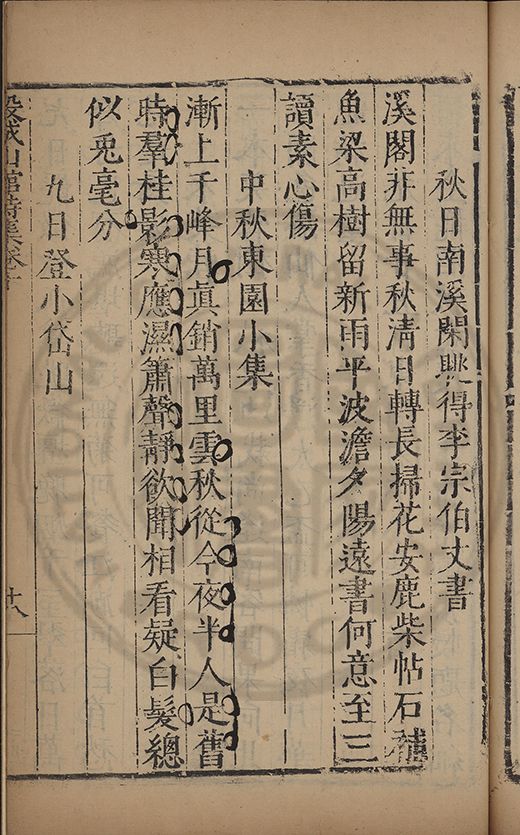 秋日南溪閑眺得李宗伯丈書
溪閣非無事秋淸日轉長掃花安鹿柴帖石補
魚梁高樹留新雨平波澹夕陽遠書何意至三
讀素心傷
中秋東園小集
漸上千峰月眞銷萬里雲秋從今夜半人是舊
時羣桂影寒應濕簫聲靜欲聞相看疑白髮總
似兎毫分
九日登小岱山
山館詩集卷十
十八